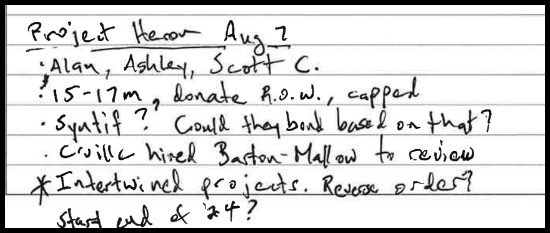 Project Heron Aug 7
· Alan, Ashley, Scott C.
· 15-17m, donate R.O.W., capped
· Syntif? Could they bond based on that?
· Cville hired Barton-Mallow to review
* Intertwined projects. Reverse order?
Start end of '24?